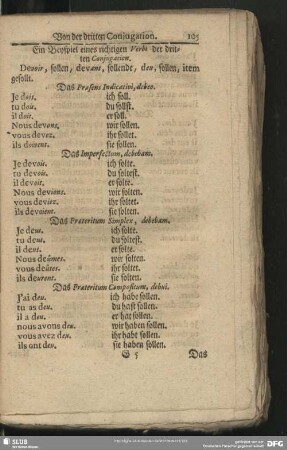 Von der dritten Conjugation. 105
Ein Beyspiel eines richtigen Verbi der drit-
ten Conjugation.
Devoir, sollen, devant, sollende, deu, sollen, item
gesollt.
Das Præsens Indicativi, debeo.
Je dois. ich soll.
tu dois. du sollst.
il doit. er soll.
Nous devons. wir sollen.
vous devez. ihr sollet.
ils doivent. sie sollen.
Das Imperfectum, debebam.
Je devois. ich solte.
tu devois. du soltest.
il devoit. er solte.
Nous devions. wir solten.
vous deviez. ihr soltet.
ils devoient. sie solten.
Das Præteritum Simplex, debebam.
Je deus. ich solte.
tu deus. du soltest.
il deut. er solte.
Nous deûmes. wir solten.
vous deûtes. ihr soltet.
ils deurent. sie solten.
Das Præteritum Compositum, debui.
J'ai deu. ich habe sollen.
tu as deu. du hast sollen.
il a deu. er hat sollen.
nous avons deu. wir haben sollen.
vous avez deu. ihr habt sollen.
ils ont deu. sie haben sollen.
G 5 Das
SLUB
DFG